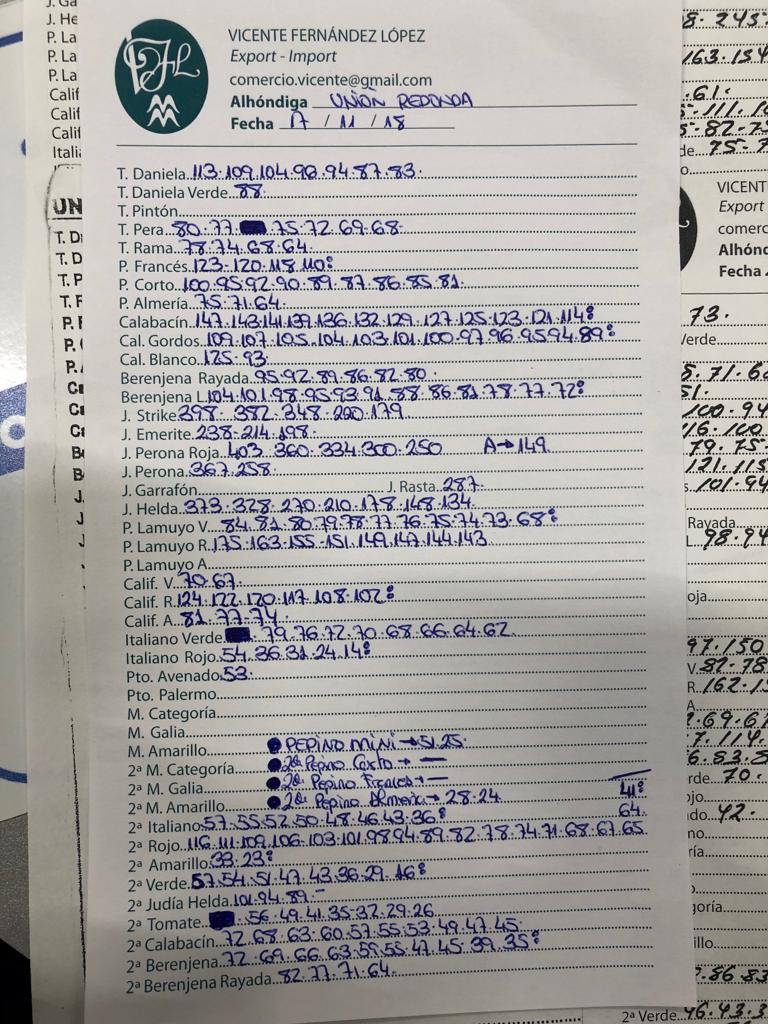 VICENTE FERNÁNDEZ LÓPEZ
Export - Import
comercio.vicente@gmail.com
Alhóndiga UNIÓN REDONDA
Fecha 17 / 11 / 18
T. Daniela 113.109.104.98.94.87.83.
T. Daniela Verde 88.
T. Pintón
T. Pera 80.77. 75.72.69.68.
T. Rama 78.74.68.64.
P. Francés 123.120.118.110:
P. Corto 100.95.92.90.89.87.86.85.81.
P. Almería 75.71.64.
Calabacín 147.143.141.139.136.132.129.127.125.123.121.114:
Cal. Gordos 109.107.105.104.103.101.100.97.96.95.94.89:
Cal. Blanco 125.93.
Berenjena Rayada 95.92.89.86.82.80.
Berenjena L. 104.101.98.95.93.91.88.86.81.78.77.72:
J. Strike 398.382.348.200.179.
J. Emerite 238.214.198.
J. Perona Roja 403.360.334.300.250 A→149.
J. Perona 367.258.
J. Garrafón J. Rasta 287.
J. Helda 373.328.270.210.178.148.134.
P. Lamuyo V. 84.81.80.79.78.77.76.75.74.73.68:
P. Lamuyo R. 175.163.155.151.149.147.144.143.
P. Lamuyo A.
Calif. V. 70.67.
Calif. R. 124.122.120.117.108.102:
Calif. A. 81.77.74.
Italiano Verde 79.76.72.70.68.66.64.62.
Italiano Rojo 54.36.31.24.14:
Pto. Avenado 53.
Pto. Palermo
M. Categoría
M. Galia
M. Amarillo ● PEPINO MINI → 51.25.
2ª M. Categoría ● 2ª Pepino Corto → —
2ª M. Galia ● 2ª Pepino Frances → —
2ª M. Amarillo ● 2ª Pepino Almeria → 28.24 41:
2ª Italiano 57.55.52.50.48.46.43.36: 64.
2ª Rojo 116.111.109.106.103.101.98.94.89.82.78.74.71.68.67.65
2ª Amarillo 33.23:
2ª Verde 57.54.51.47.43.36.29.16:
2ª Judía Helda 101.94.89.-
2ª Tomate 56.49.41.35.32.29.26
2ª Calabacín 72.68.63.60.57.55.53.49.47.45.
2ª Berenjena 72.69.66.63.59.55.47.45.39.35:
2ª Berenjena Rayada 82.77.71.64.